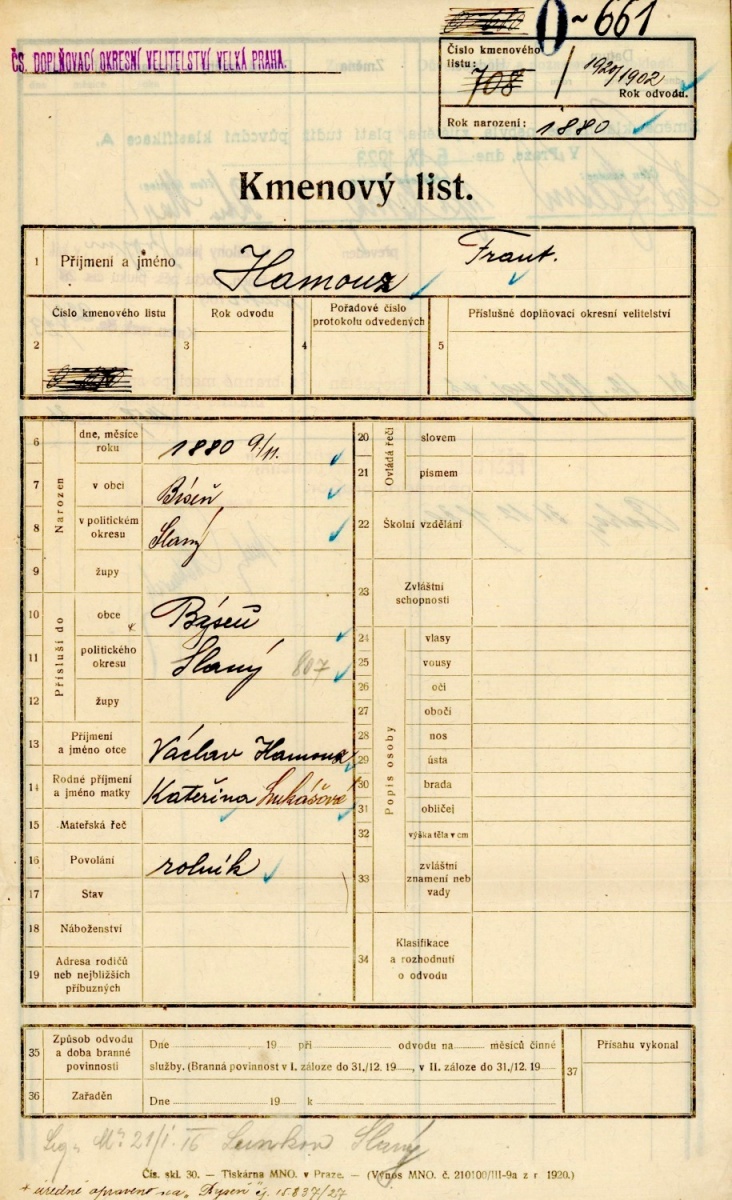 0-661
ČS. DOPLŇOVACÍ OKRESNÍ VELITELSTVÍ VELKÁ PRAHA.
Číslo kmenového
listu:
708 / 1920/1902
Rok odvodu.
Rok narození: 1880
Kmenový list.
1 Příjmení a jméno Hamouz Frant.
2 Číslo kmenového listu
3 Rok odvodu
4 Pořadové číslo
protokolu odvedených
5 Příslušné doplňovací okresní velitelství
Narozen
6 dne, měsíce
roku 1880 9/11.
7 v obci Býseň
8 v politickém
okresu Slaný
9 župy
Přísluší do
10 obce Býseň
11 politického
okresu Slaný 807
12 župy
13 Příjmení
a jméno otce Václav Hamouz
14 Rodné příjmení
a jméno matky Kateřina Lukášová
15 Mateřská řeč
16 Povolání rolník
17 Stav
18 Náboženství
19 Adresa rodičů
neb nejbližších
příbuzných
Ovládá řeči
20 slovem
21 písmem
22 Školní vzdělání
23 Zvláštní
schopnosti
Popis osoby
24 vlasy
25 vousy
26 oči
27 obočí
28 nos
29 ústa
30 brada
31 obličej
32 výška těla v cm
33 zvláštní
znamení neb
vady
34 Klasifikace
a rozhodnutí
o odvodu
35 Způsob odvodu
a doba branné
povinnosti
Dne 19 při odvodu na měsíců činné
služby. (Branná povinnost v I. záloze do 31./12. 19 , v II. záloze do 31./12. 19
36 Zařaděn
Dne 19 k
37 Přísahu vykonal
21/I. 16 Slaný
Čís. skl. 30. — Tiskárna MNO. v Praze. — (Výnos MNO. č. 210100/III-9a z r. 1920.)
* úředně opraveno na „Býseň" čj. 15837/27